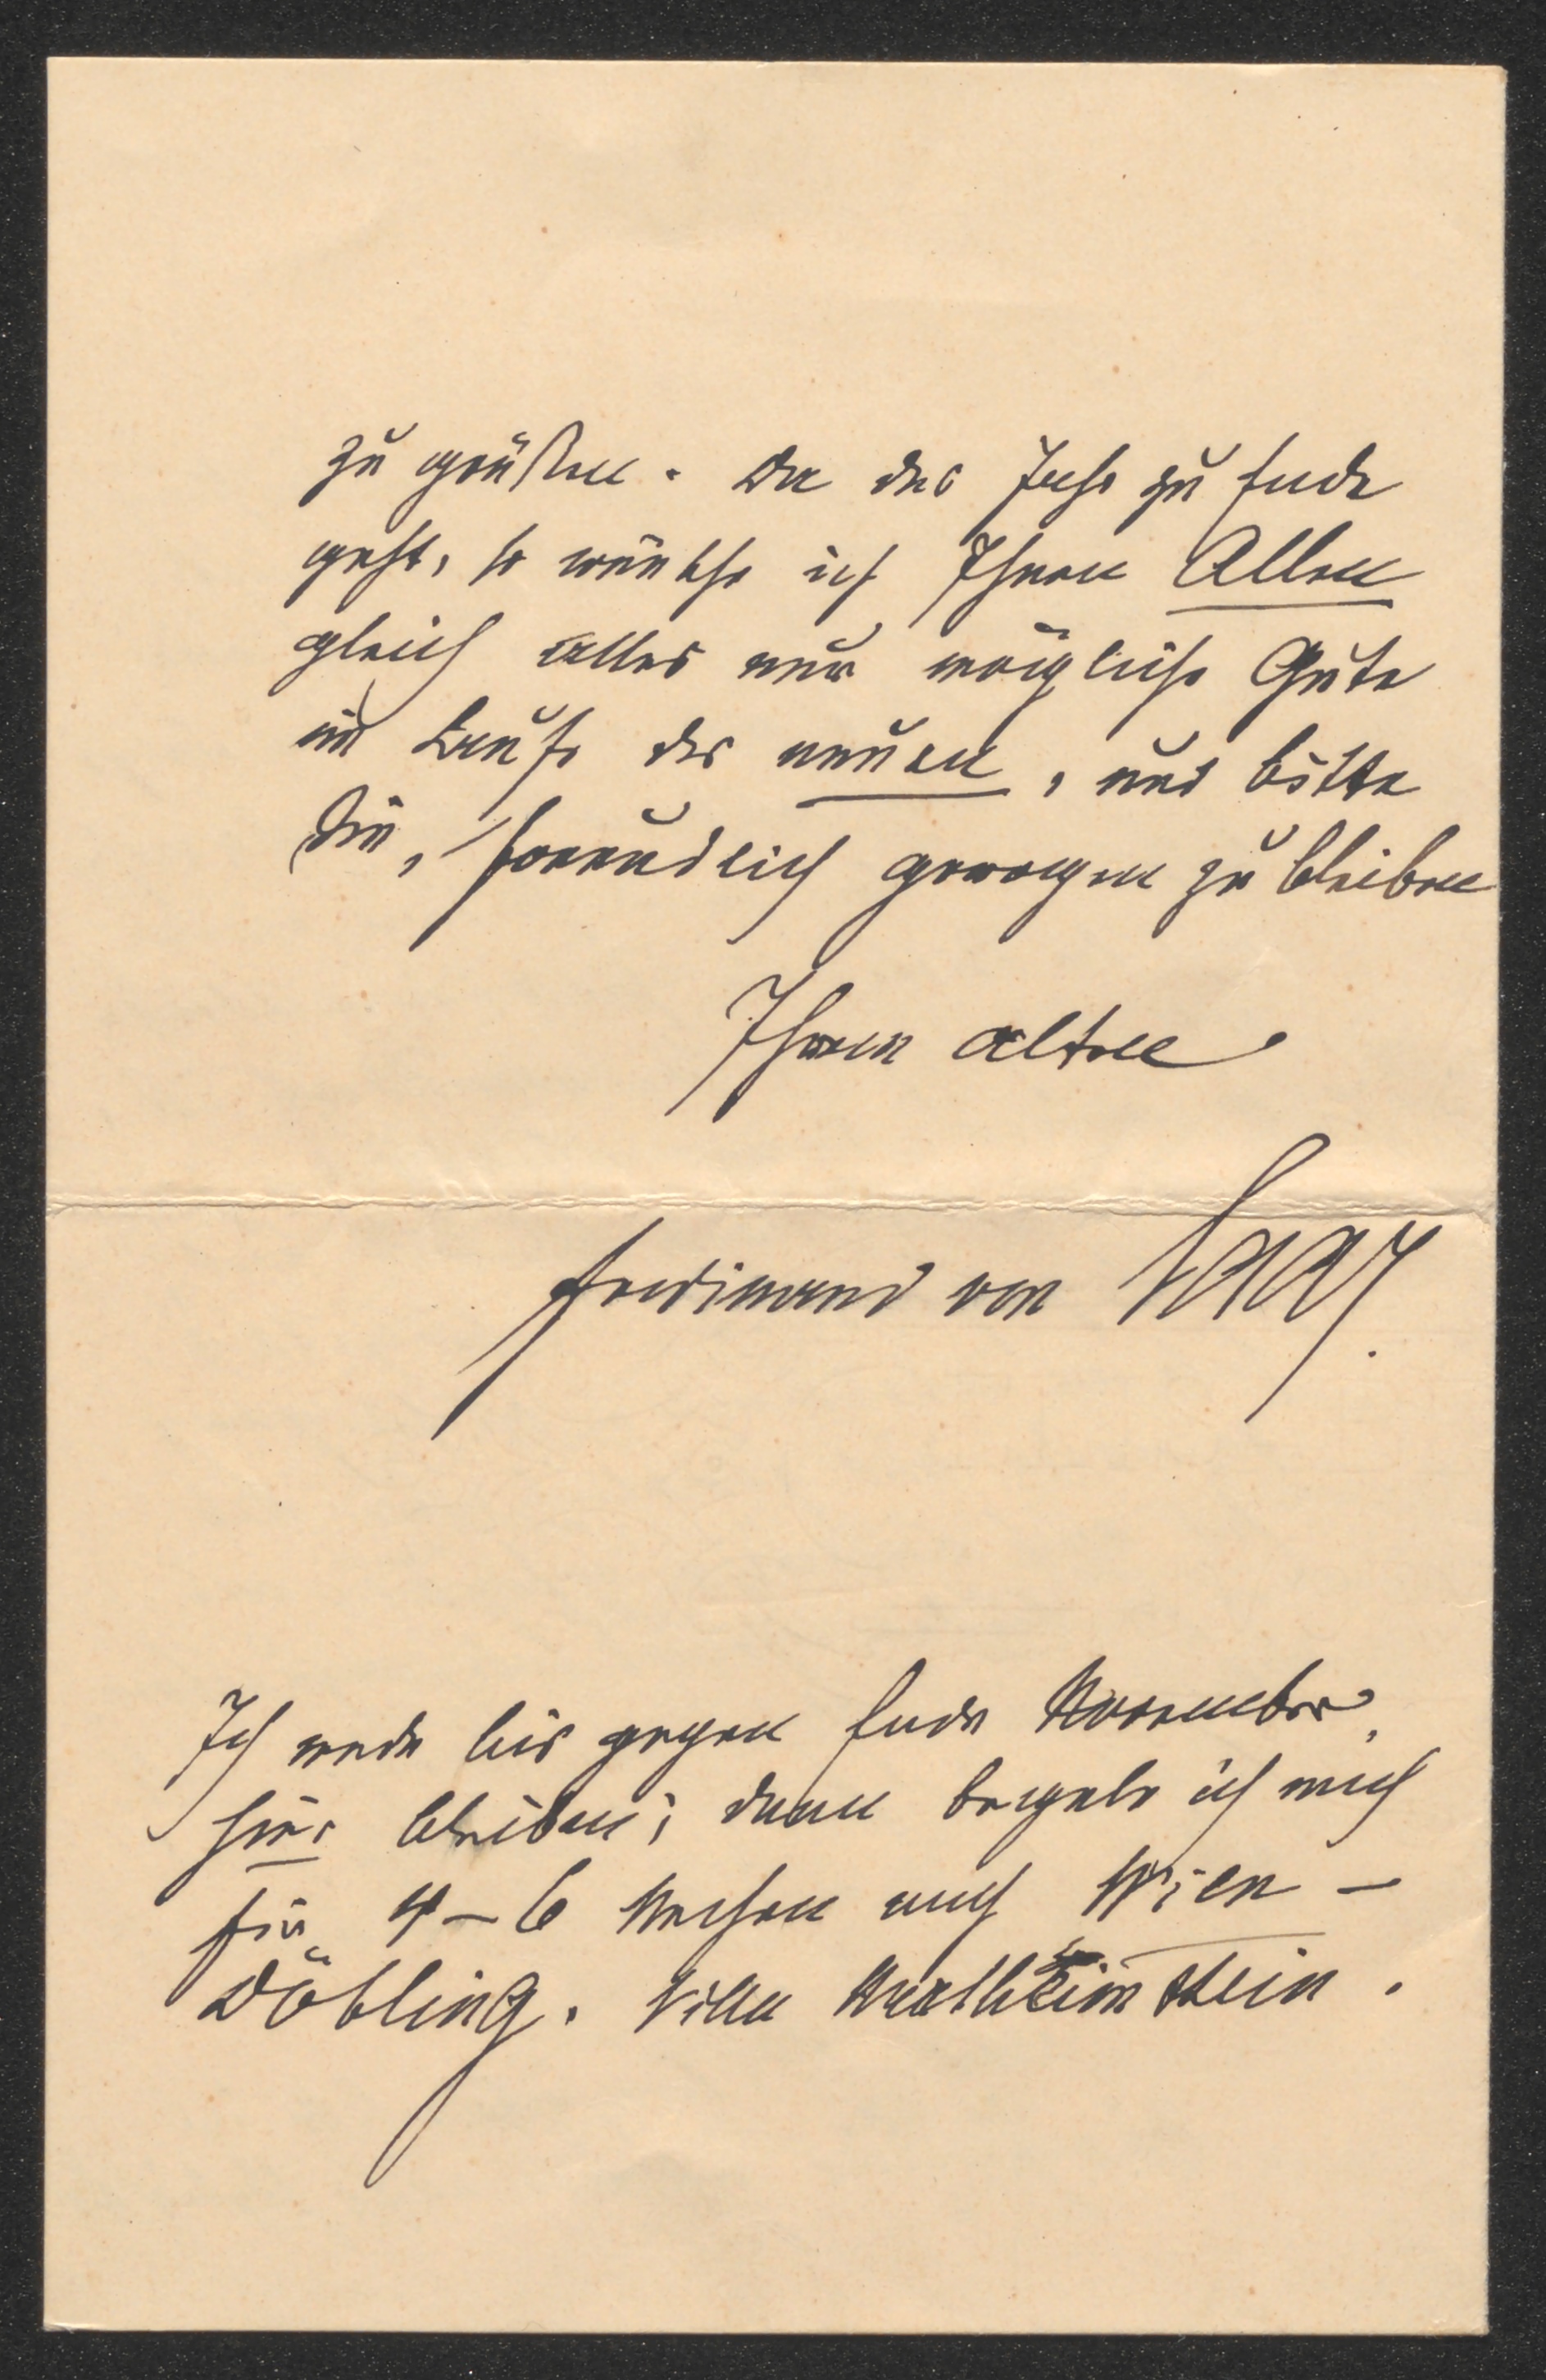 zu grüßen. Da das Jahr zu Ende
geht, so wünsche ich Ihnen Allen
gleich alles nur mögliche Gute
im Laufe des neuen, und bitte
Sie, freundlich gewogen zu bleiben
Ihrem alten
Ferdinand von Saar.
Ich werde bis gegen Ende November
hier bleiben; dann begebe ich mich
für 4–6 Wochen nach Wien –
Döbling. Villa Wertheimstein.